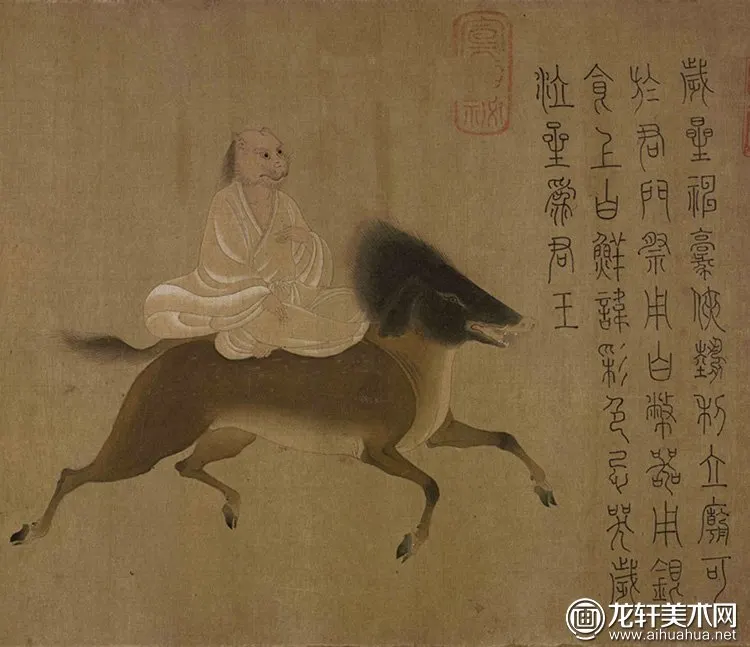 歲星神豪俠勢利立廟可
於君門祭用白幣器用銀
食上白鮮諱彩色忌哭歲
泣星爲君王
画
龙轩美术网
www.aihuahua.net